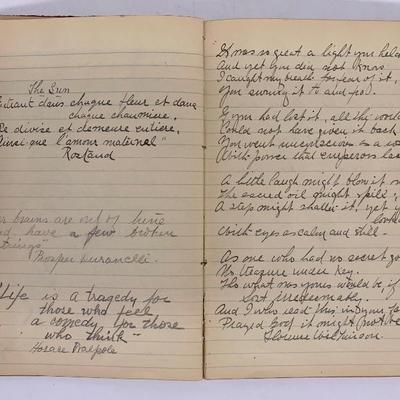 The Sun
Entrant dans chaque fleur et dans
chaque chaumière,
Se divise et demeure entière,
Ainsi que l'amour maternel"
Rostand
brains are out of tune
and have a few broken
strings"
Life is a tragedy for
those who feel
a comedy for those
who think"
Horace Walpole
It was so great a light you held
And yet you did not know
I caught my breath for fear of it,
You swung it to and fro.
If you had lost it, all the world
Could not have given it back
You went unconscious as a
With power that emperors lack
A little laugh might blow it out
The sacred oil might spill,
A step might shatter it, yet
With eyes calm and still.
As one who had no secret
No treasure under key.
Tho what was yours would be if
lost Irredeemably.
And I who read this in your face
Prayed God it might not be
Florence Wilkinson